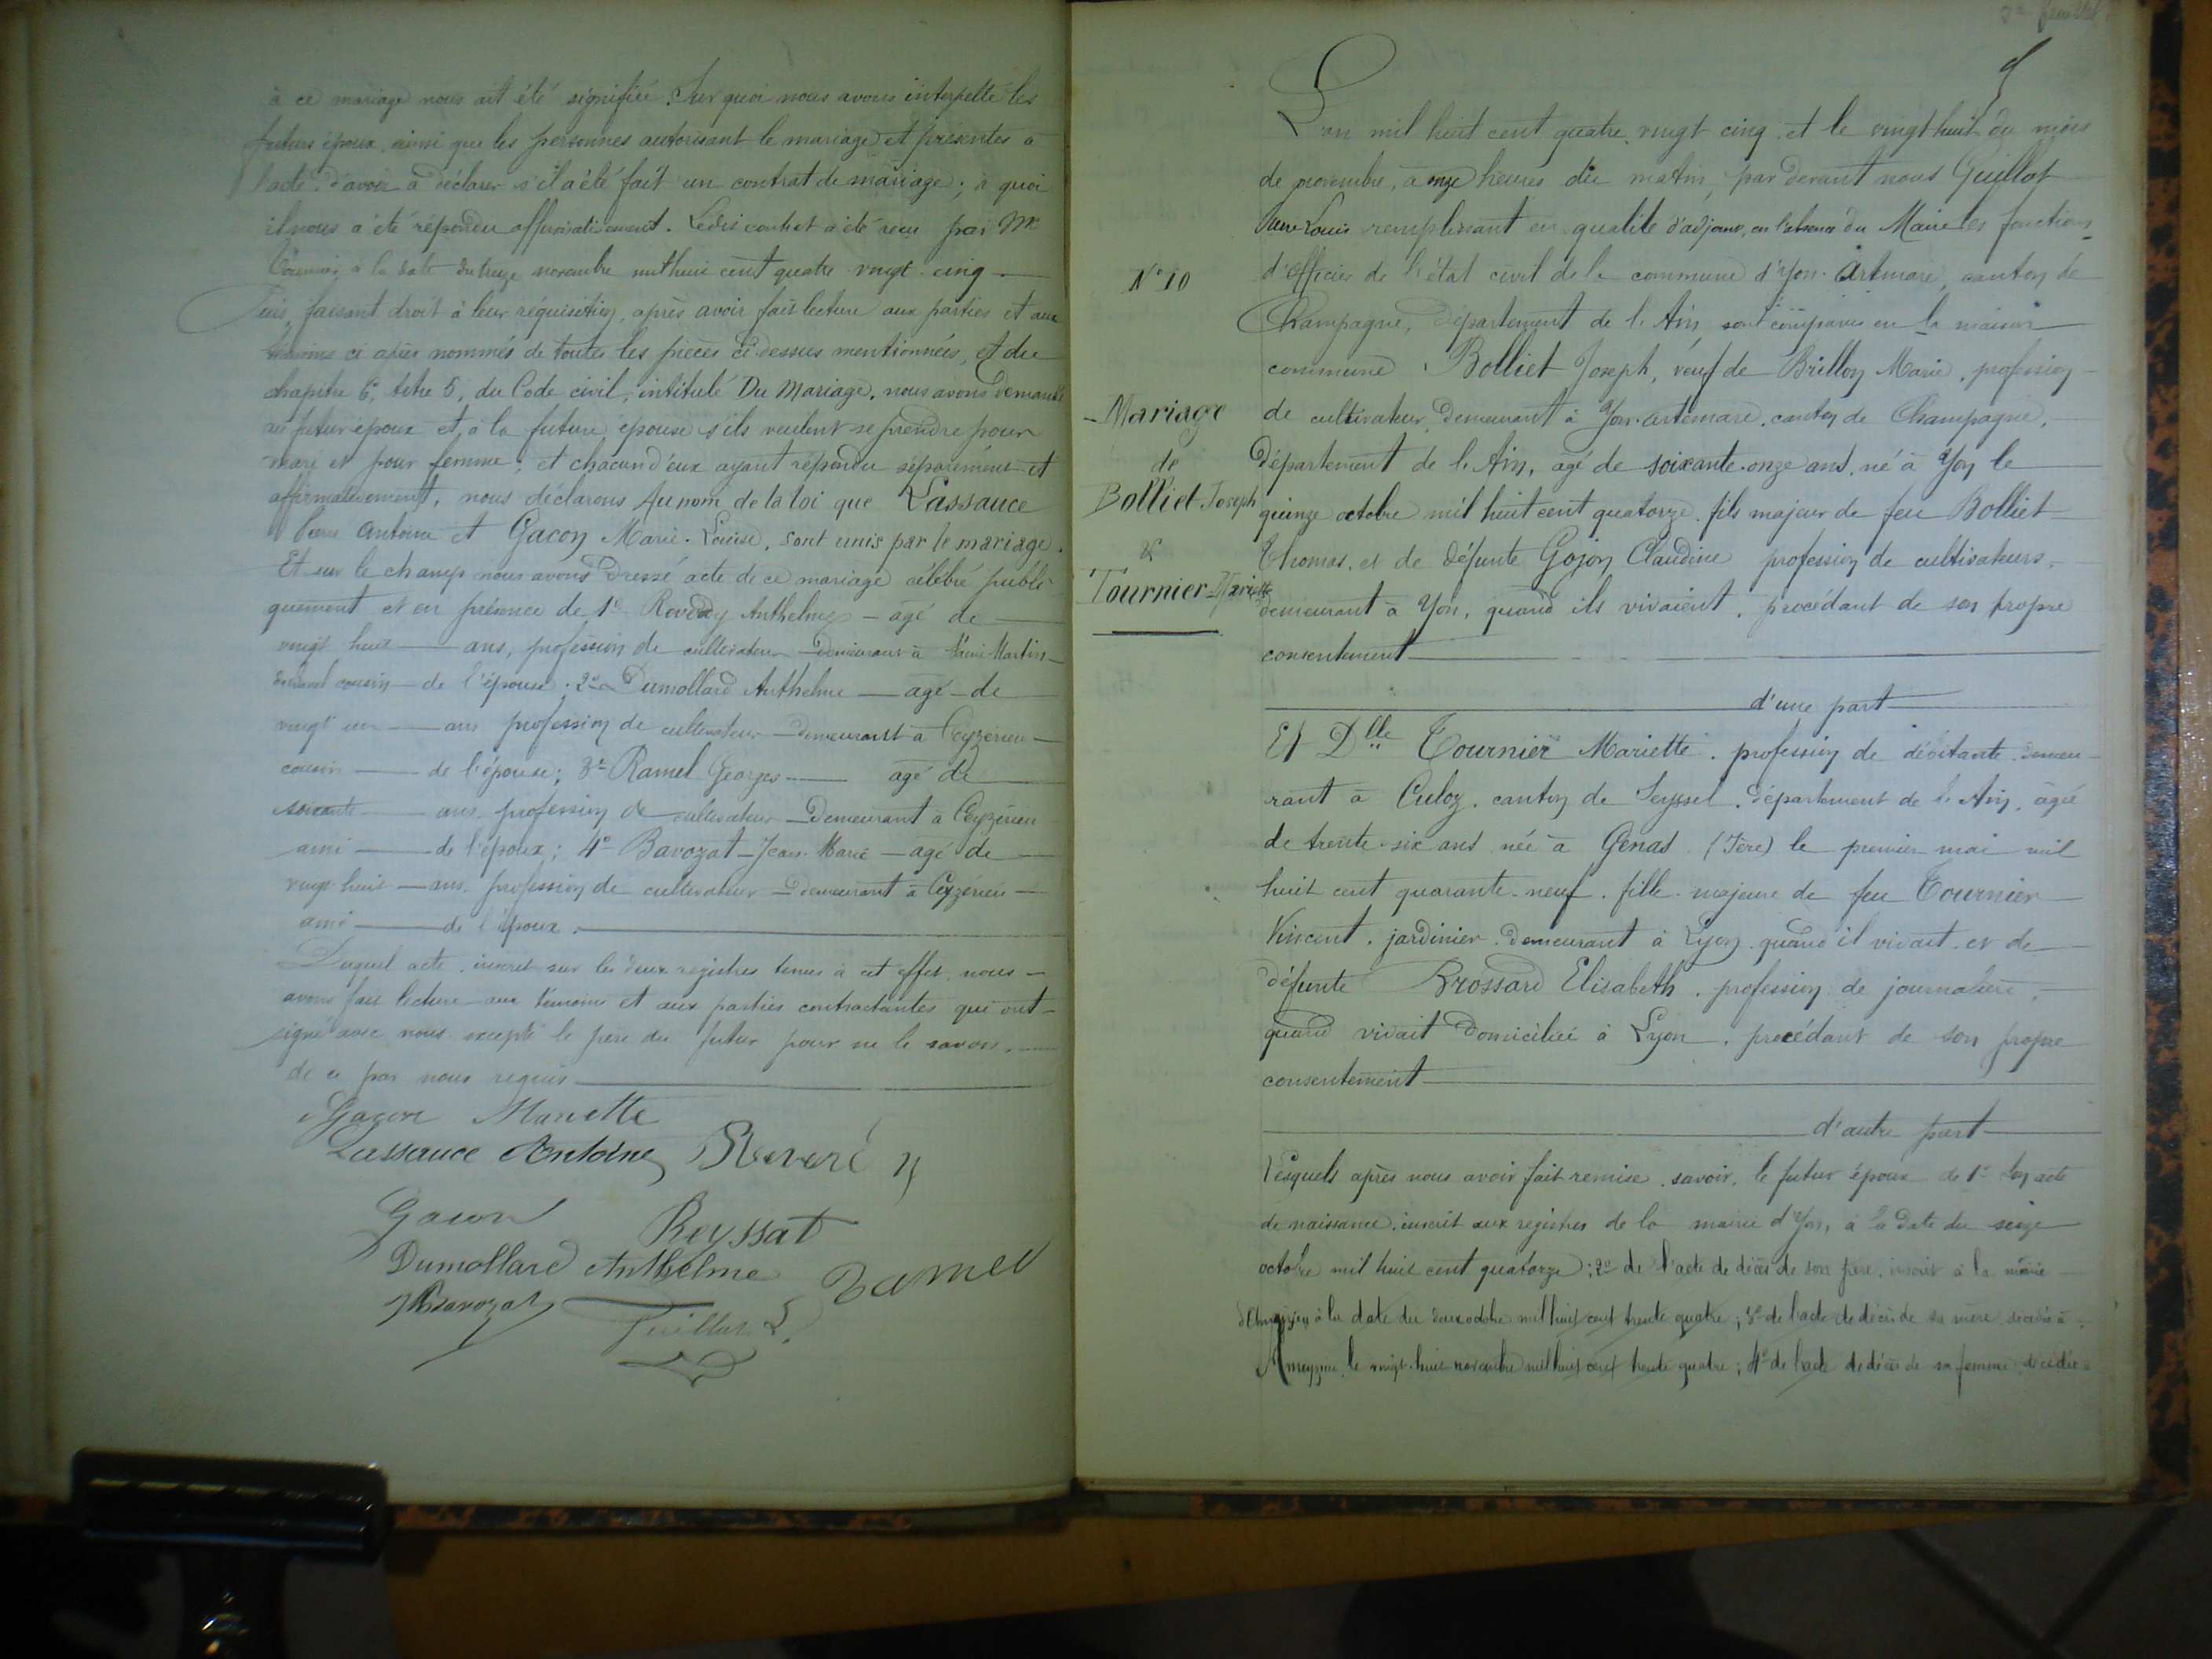 à ce mariage nous ait été signifiée. Sur quoi nous avons interpellé les
futurs époux, ainsi que les personnes autorisant le mariage et présentes à
l'acte d'avoir à déclarer s'il a été fait un contrat de mariage; à quoi
il nous a été répondu affirmativement. Ledit contrat a été reçu par Me
à la date du treize novembre mil huit cent quatre vingt cinq
Puis, faisant droit à leur réquisition, après avoir fait lecture aux parties et aux
témoins ci après nommés de toutes les pièces ci-dessus mentionnées, et du
chapitre 6, titre 5, du Code civil, intitulé Du Mariage, nous avons demandé
au futur époux et à la future épouse s'ils veulent se prendre pour
mari et pour femme; et chacun d'eux ayant répondu séparément et
affirmativement, nous déclarons Au nom de la loi que Lassauce
Pierre Antoine et Gacon Marie-Louise, sont unis par le mariage.
Et sur le champ nous avons dressé acte de ce mariage célébré publi-
quement et en présence de 1° Reveray Anthelme - âgé de
vingt huit ans, profession de cultivateur demeurant à Saint Martin
cousin de l'épouse. 2° Dumollard Anthelme âgé de
vingt un ans profession de cultivateur demeurant à Ceyzerieu
cousin de l'épouse; 3° Ramel Georges âgé de
soixante ans, profession de cultivateur demeurant à Ceyzérieu
ami de l'époux; 4° Bavozat Jean Marie âgé de
vingt huit ans, profession de cultivateur demeurant à Ceyzérieu
ami de l'époux.
Duquel acte, inscrit sur les deux registres tenus à cet effet, nous
avons fait lecture aux témoins et aux parties contractantes qui ont
signé avec nous excepté le père du futur pour ne le savoir,
de ce par nous requis
Gacon Mariette
Lassauce Antoine
Gacon Reyssat
Dumollard Anthelme Ramel
J Bavozat Guillot L.
5
L'an mil huit cent quatre vingt cinq et le vingt huit du mois
de novembre, à onze heures du matin, par devant nous Guillot
Louis remplissant en qualité d'adjoint, en l'absence du Maire les fonctions
d'officier de l'état civil de la commune d'Yon-Artemare, canton de
Champagne, département de l'Ain, sont comparus en la maison
commune Bolliet Joseph, veuf de Brillon Marie, profession
de cultivateur, demeurant à Yon-artemare, canton de Champagne,
département de l'Ain, âgé de soixante-onze ans, né à Yon le
quinze octobre mil huit cent quatorze, fils majeur de feu Bolliet
Thomas, et de défunte Gojon Claudine profession de cultivateurs,
demeurant à Yon, quand ils vivaient, procédant de son propre
consentement
d'une part
N° 10
Mariage
de
Bolliet Joseph
&
Tournier Mariette
Et Dlle Tournier Mariette, profession de débitante demeu-
rant à Culoz, canton de Seyssel, département de l'Ain, âgée
de trente-six ans née à Genas (Isère) le premier mai mil
huit cent quarante-neuf, fille majeure de feu Tournier
Vincent, jardinier demeurant à Lyon quand il vivait et de
défunte Brossard Elisabeth, profession de journalière,
quand vivait domiciliée à Lyon, procédant de son propre
consentement
d'autre part
Lesquels après nous avoir fait remise, savoir, le futur époux de 1° son acte
de naissance, inscrit aux registres de la mairie d'Yon, à la date du seize
octobre mil huit cent quatorze; 2° de l'acte de décès de son père, inscrit à la mairie
à la date du deux octobre mil huit cent trente quatre; 3° de l'acte de décès de sa mère décédée à
Ameyzieu, le vingt-huit novembre mil huit cent trente quatre; 4° de l'acte de décès de sa femme décédée